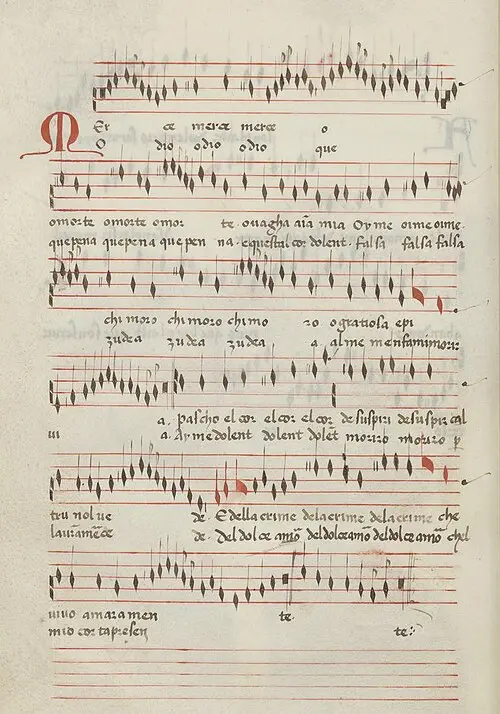 Mer ce merce merce o
O dio odio odio que
omorte omorte omor te. ovagha aīa mia Oyme oime oime.
quepena quepena que pen na. equestal cor dolent. falsa falsa falsa
chi moro chi moro chi mo ro ogratiosa epi
zudea zudea zudea a. alme men fami morir
a. pascho el cor el cor el cor de suspiri de suspir cal
ui a. Ay me dolent dolent dolēt moriro moriro p
tru nol ve de. E della crime dela crime dela crime che
lauramēce de. Del dolce amō del dolce amō del dolce amō chel
vivo amaramen te.
mio cor tapresen te: